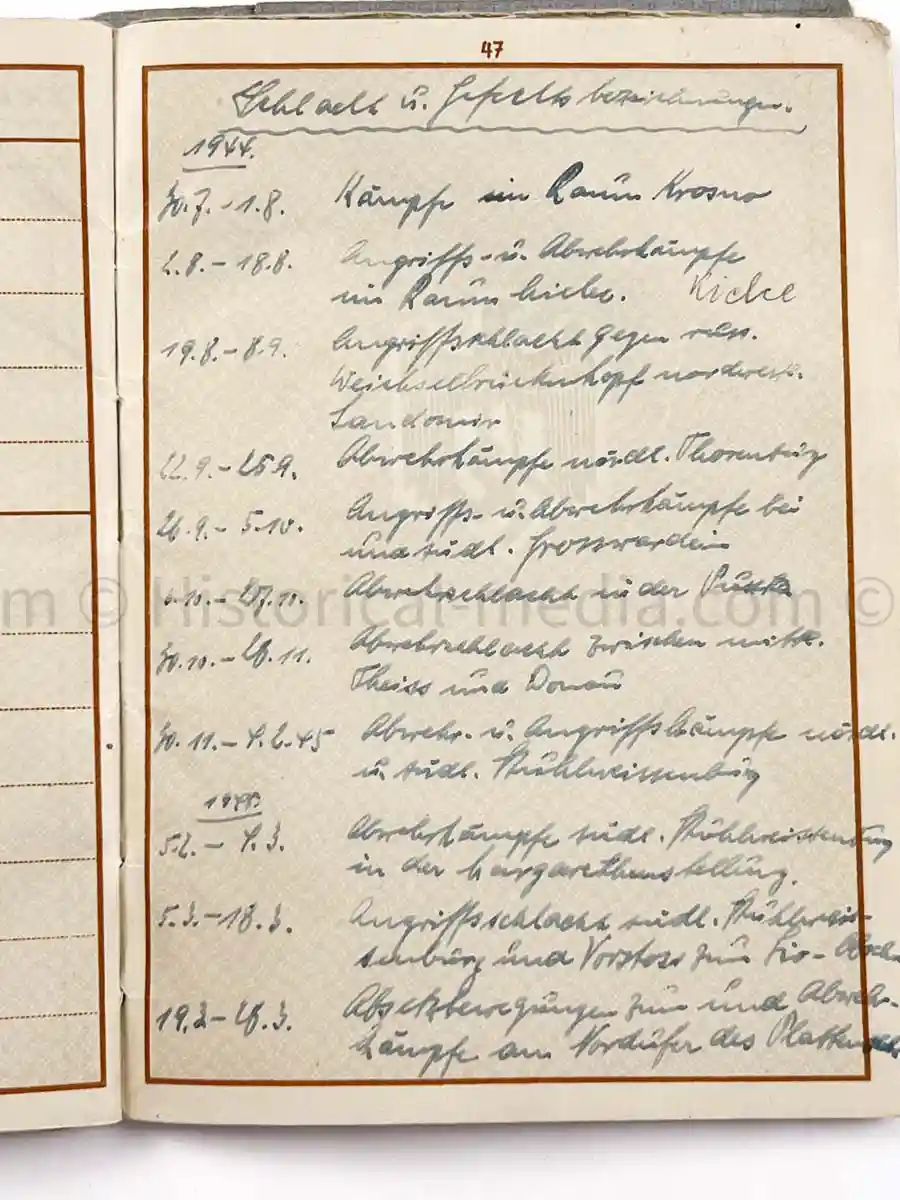 47
Schlacht u. Gefechtsbezeichnungen.
1944.
30.7. - 1.8. Kämpfe im Raum Krosno
2.8. - 18.8. Angriffs- u. Abwehrkämpfe
im Raum Mielec. Kielce
19.8. - 8.9. Angriffsschlacht gegen russ.
Weichselbrückenkopf nordwestl.
Sandomir
22.9. - 25.9. Abwehrkämpfe nördl. Thorenburg
26.9. - 5.10. Angriffs- u. Abwehrkämpfe bei
und südl. Grosswardein
6.10. - 27.10. Abwehrschlacht in der Pussta
30.10. - 26.11. Abwehrschlacht zwischen mittl.
Theiss und Donau
30.11. - 4.2.45 Abwehr- u. Angriffskämpfe nördl.
u. südl. Stuhlweissenburg
1945
5.2. - 4.3. Abwehrkämpfe südl. Stuhlweissenburg
in der Margarethenstellung.
5.3. - 18.3. Angriffsschlacht südl. Stuhlweis-
senburg und Vorstoss zum Sio-
19.3. - 26.3. Absetzbewegungen zum und Abwehr-
kämpfe am Nordufer des
m © Historical-media.com ©